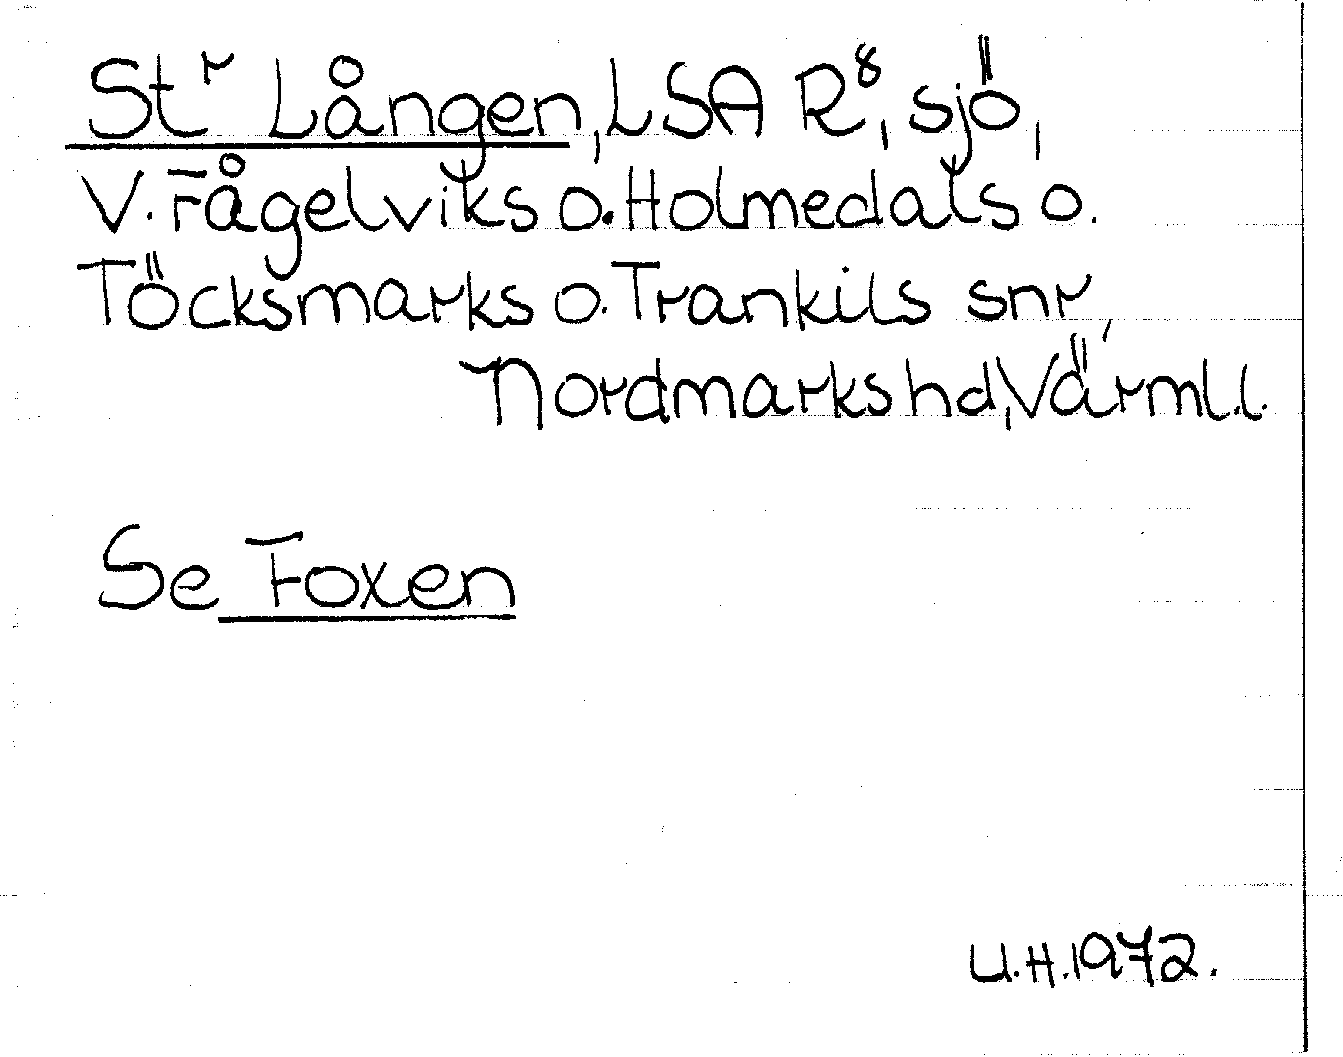 Stʳ Lången, LSA R⁸, sjö,
V. Fågelviks o. Holmedals o.
Töcksmarks o. Trankils snr,
Nordmarks hd, Värml.l.
Se Foxen
U.H.1972.